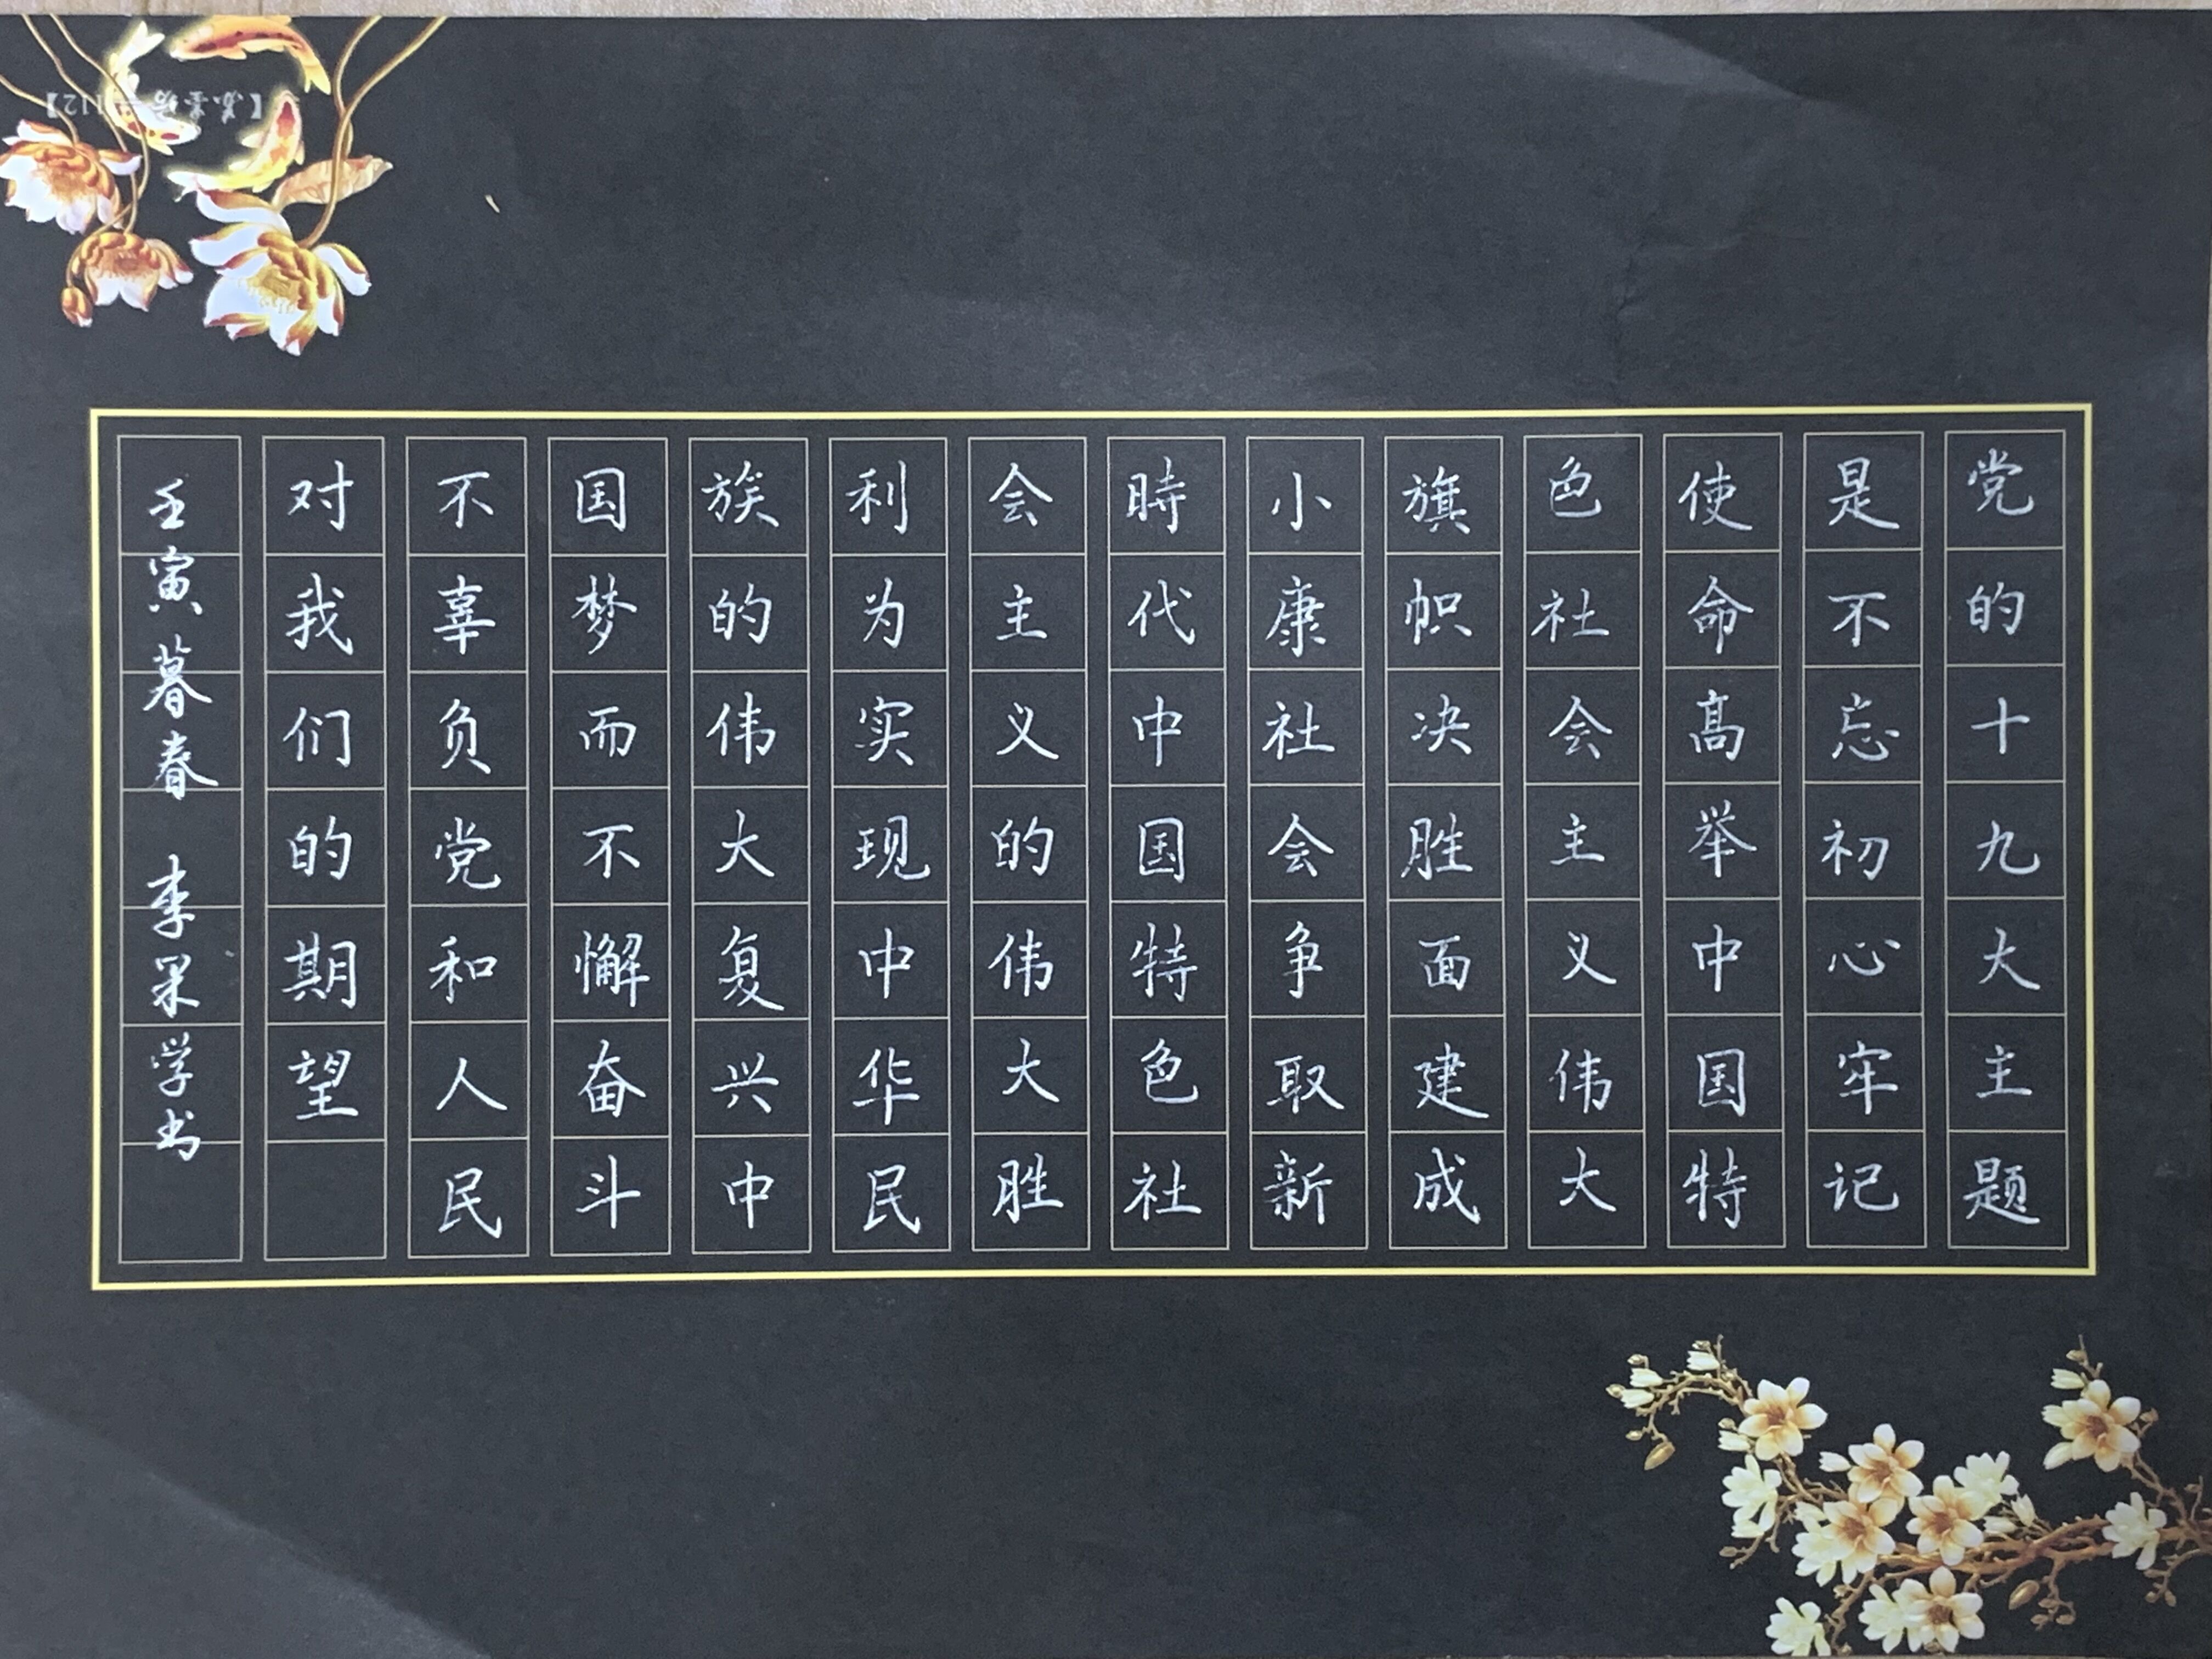 党的十九大主题
是不忘初心牢记
使命高举中国特
色社会主义伟大
旗帜决胜面建成
小康社会争取新
時代中国特色社
会主义的伟大胜
利为实现中华民
族的伟大复兴中
国梦而不懈奋斗
不辜负党和人民
对我们的期望
壬寅暮春 李 学书